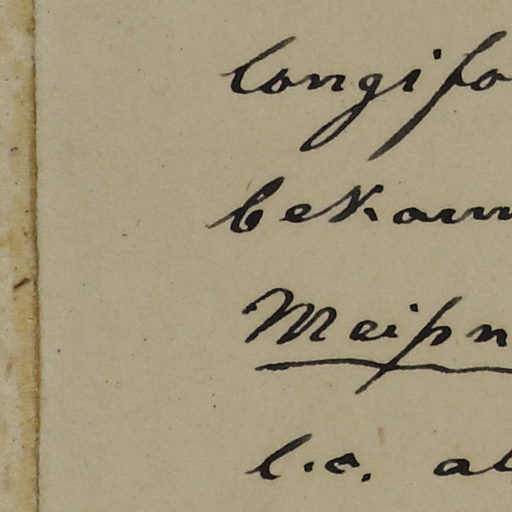 longifo
bekann
Meißn
l.c. al